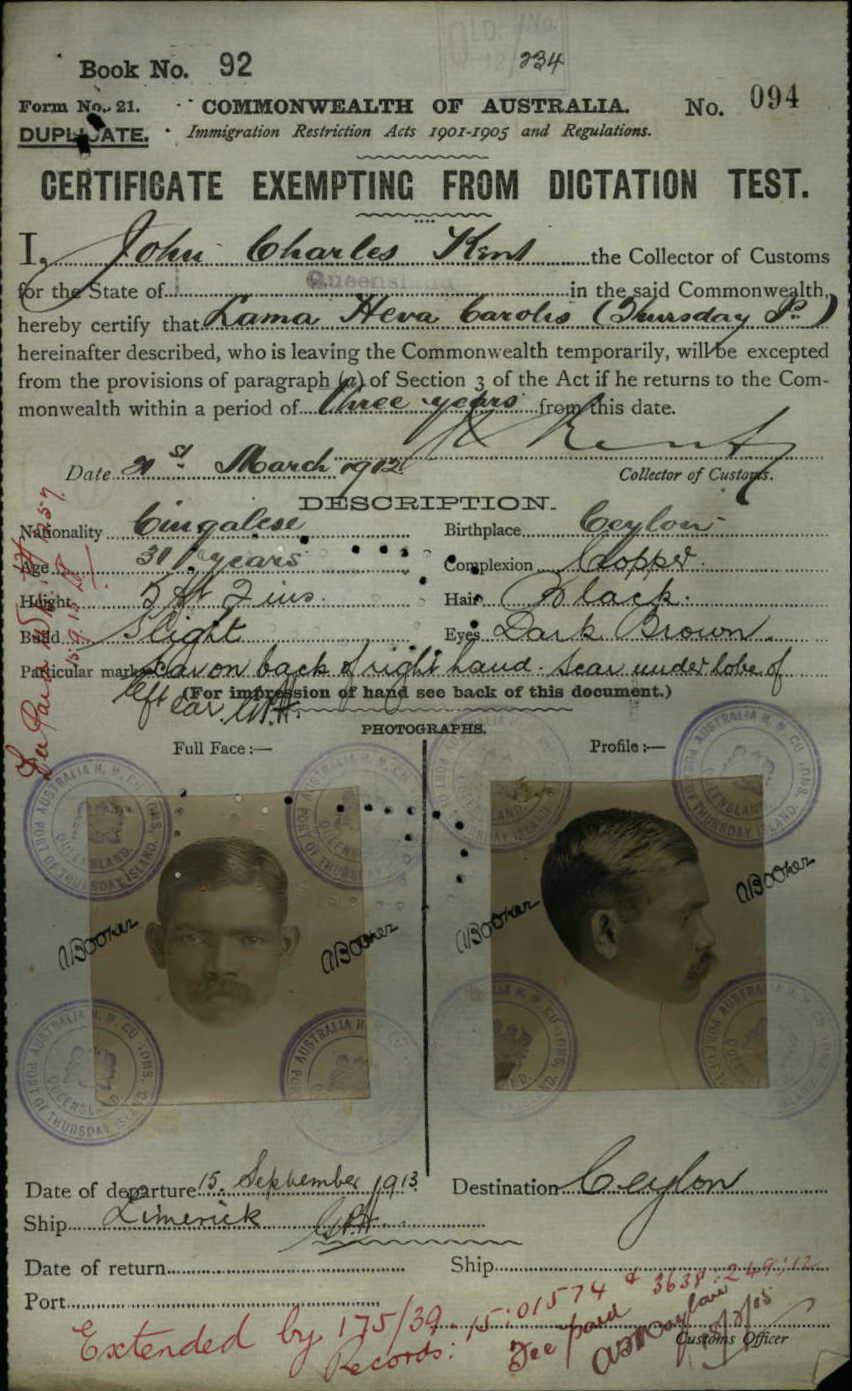 Book No. 92
234
Form No. 21.
COMMONWEALTH OF AUSTRALIA.
No. 094
DUPLICATE.
Immigration Restriction Acts 1901-1905 and Regulations.
CERTIFICATE EXEMPTING FROM DICTATION TEST.
I, John Charles Kent the Collector of Customs
for the State of Queensland in the said Commonwealth,
hereby certify that Lama Heva Carolis (Thursday Is.)
hereinafter described, who is leaving the Commonwealth temporarily, will be excepted
from the provisions of paragraph (a) of Section 3 of the Act if he returns to the Com-
monwealth within a period of three years from this date.
Kent
Date 21st March 1912
Collector of Customs.
DESCRIPTION.
Nationality Cingalese
Birthplace Ceylon
Age 31 years
Complexion Copper
Height 5 ft 7 ins.
Hair Black.
Build Slight
Eyes Dark Brown.
Particular marks Scar on back of right hand. Scar under lobe of
left ear.
(For impression of hand see back of this document.)
PHOTOGRAPHS.
Full Face :—
Profile :—
AUSTRALIA H. M. CUSTOMS. PORT OF THURSDAY ISLAND. QUEENSLAND.
ABooker
ABooker
ABooker
ABooker
Date of departure 15. September 1913
Destination Ceylon
Ship Limerick
Date of return
Ship
Port
Extended by 175/39.
Records: 15:01574 & 3638:
Fee paid
Customs Officer